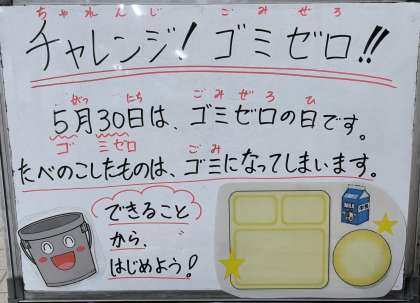 ちゃれんじ ごみぜろ
チャレンジ！ゴミゼロ！！
がつ にち ごみぜろ ひ
5月30日は、ゴミゼロの日です。
ゴ ミゼロ
ごみ
たべのこしたものは、ゴミになってしまいます。
できること
から、
はじめよう！
MILK